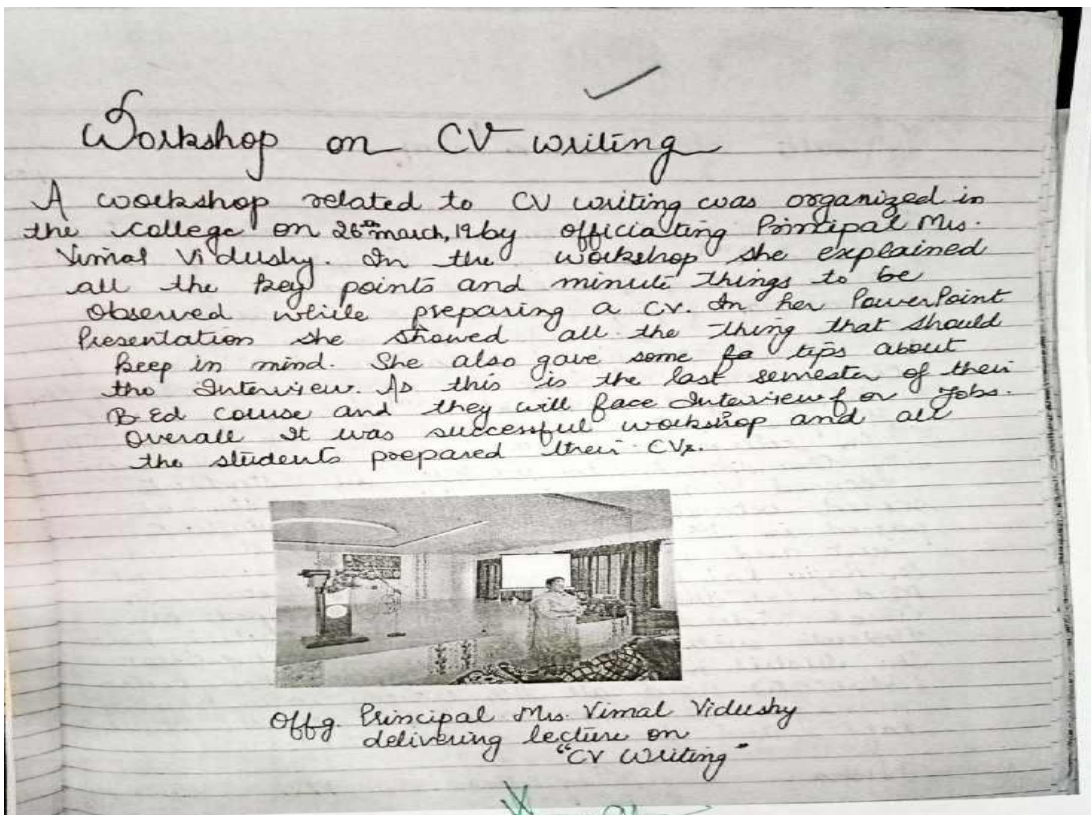 Workshop on CV writing
A workshop related to CV writing was organized in
the college on 26th march, 19 by officiating Principal Mrs.
Vimal Vidushy. In the workshop she explained
all the key points and minute things to be
Observed while preparing a CV. In her PowerPoint
Presentation she showed all the thing that should
keep in mind. She also gave some tips about
the Interview. As this is the last semester of their
B.Ed course and they will face Interview for Jobs.
Overall It was successful workshop and all
the students prepared their CVs.
Offg. Principal Mrs. Vimal Vidushy
delivering lecture on
"CV Writing"